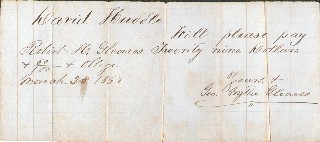 David Huddle
Will please pay
Robert H. Gleaves Twenty nine Dollars
& 50/100 & Oblige
March 28 186
Yours &
Geo. Wythe Gleaves